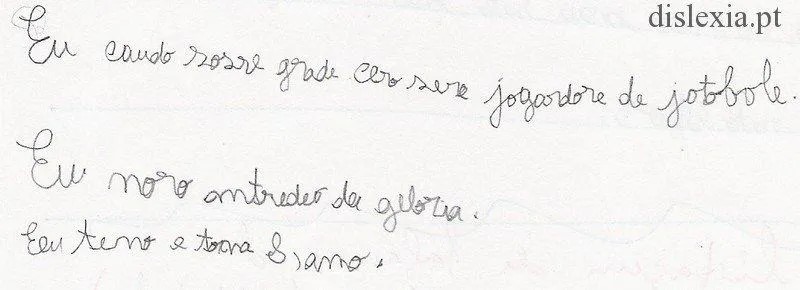 dislexia.pt
Eu caudo sosse grade cero sere jogardore de jotobole.
Eu noro antredeo da geloria.
Eeu teno e torna 8 , amo.